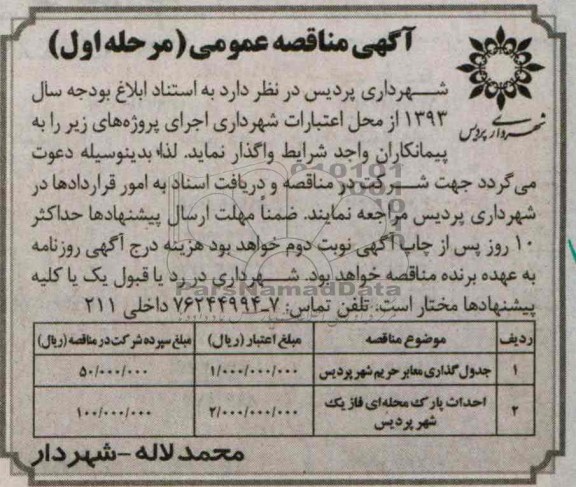 آگهی مناقصه عمومی (مرحله اول)
شهرداری پردیس
شهرداری پردیس در نظر دارد به استناد ابلاغ بودجه سال
۱۳۹۳ از محل اعتبارات شهرداری اجرای پروژه‌های زیر را به
پیمانکاران واجد شرایط واگذار نماید. لذا بدینوسیله دعوت
می گردد جهت شرکت در مناقصه و دریافت اسناد به امور قراردادها در
شهرداری پردیس مراجعه نمایند. ضمناً مهلت ارسال پیشنهادها حداکثر
۱۰ روز پس از چاپ آگهی نوبت دوم خواهد بود هزینه درج آگهی روزنامه
به عهده برنده مناقصه خواهد بود. شهرداری در رد یا قبول یک یا کلیه
پیشنهادها مختار است. تلفن تماس: ۷-۷۶۲۴۴۹۹۴ داخلی ۲۱۱
ردیف موضوع مناقصه مبلغ اعتبار (ریال) مبلغ سپرده شرکت در مناقصه (ریال)
۱ جدول گذاری معابر حریم شهر پردیس ۱/۰۰۰/۰۰۰/۰۰۰ ۵۰/۰۰۰/۰۰۰
۲ احداث پارک محله‌ای فاز یک شهر پردیس ۲/۰۰۰/۰۰۰/۰۰۰ ۱۰۰/۰۰۰/۰۰۰
محمد لاله - شهردار
ParsNamadData